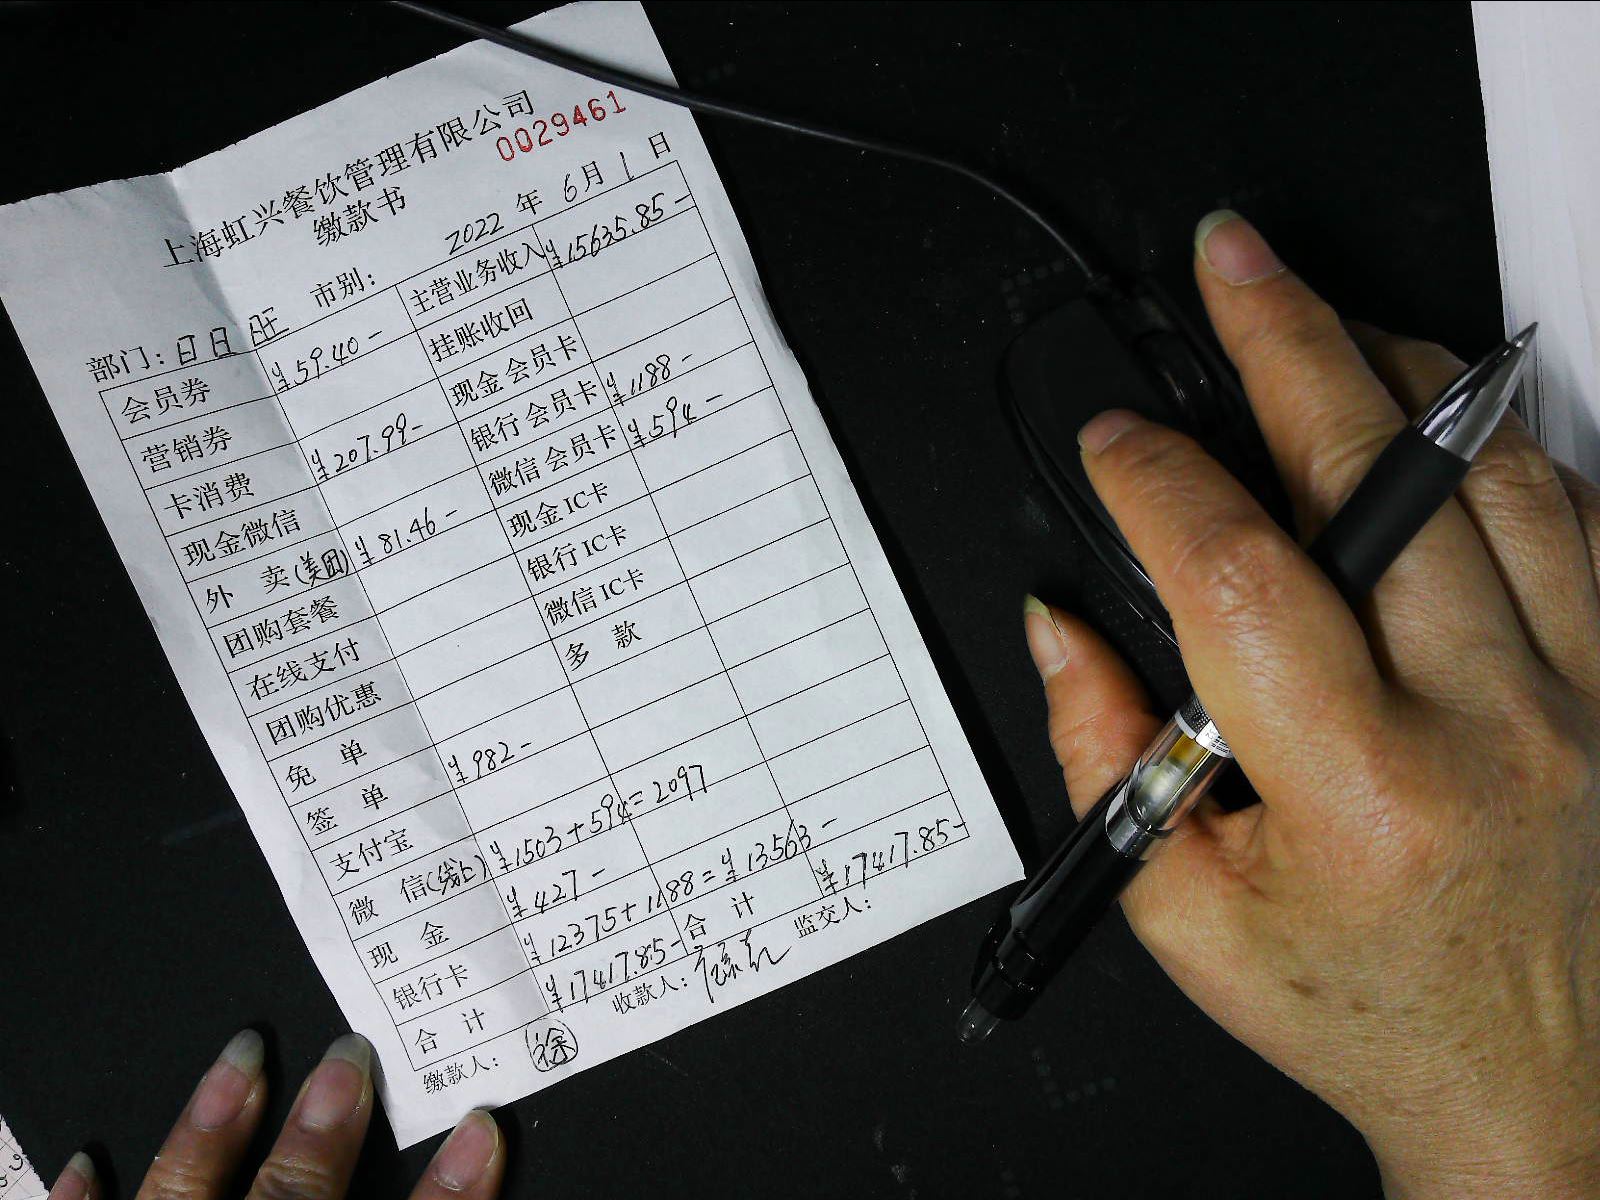 上海虹兴餐饮管理有限公司
缴款书
0029461
部门：日日旺 市别： 2022 年 6 月 1 日
会员券 ¥59.40- 主营业务收入 ¥15635.85-
营销券 挂账收回
卡消费 ¥207.99- 现金会员卡
现金微信 银行会员卡 ¥1188-
外 卖(美团) ¥81.46- 微信会员卡 ¥594-
团购套餐 现金IC卡
在线支付 银行IC卡
团购优惠 微信IC卡
免 单 多 款
签 单 ¥982-
支付宝
微 信(线上) ¥1503+594=2097
现 金 ¥427-
银行卡 ¥12375+1188=¥13563-
合 计 ¥17417.85- 合 计 ¥17417.85-
缴款人： 徐 收款人： 监交人：